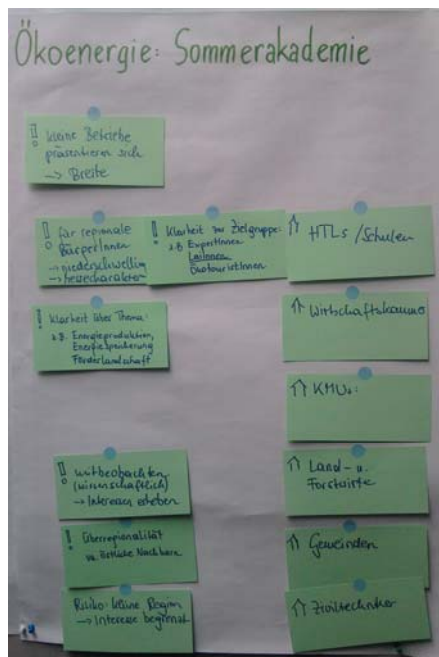 Ökoenergie: Sommerakademie
! kleine Betriebe
präsentieren sich
→ Breite
! für regionale
BürgerInnen
→ niederschwellig
→ Messecharakter
! Klarheit zur Zielgruppe:
z.B ExpertInnen
LaiInnen
ÖkotouristInnen
⇑ HTLs / Schulen
! Klarheit über Thema:
z.B. Energieproduktion,
Energiespeicherung
Förderlandschaft
⇑ Wirtschaftskammer
⇑ KMUs:
! mitbeobachten
(wissenschaftlich)
→ Interessen erheben
⇑ Land- u.
Forstwirte
! Überregionalität
Betriebe Nachbarn
⇑ Gemeinden
Risiko: kleine Region
→ Interesse begrenzt
⇑ Ziviltechniker